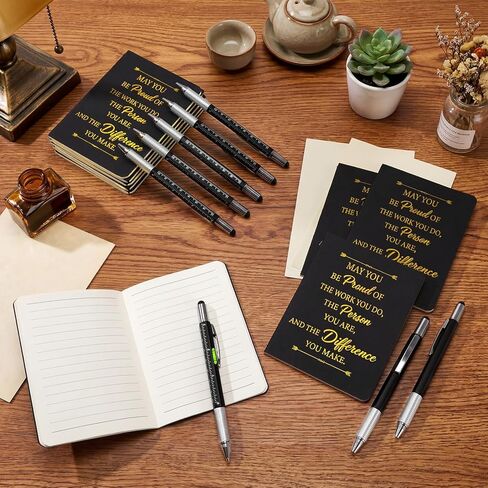 MAY YOU
BE Proud OF
THE WORK YOU DO,
THE Person
YOU ARE,
AND THE Difference
YOU MAKE.
MAY YOU
BE Proud OF
THE WORK YOU DO,
THE Person
YOU ARE,
AND THE Difference
MAY YOU
BE Proud OF
THE WORK YOU DO,
THE Person
YOU ARE,
AND THE Difference
YOU MAKE.